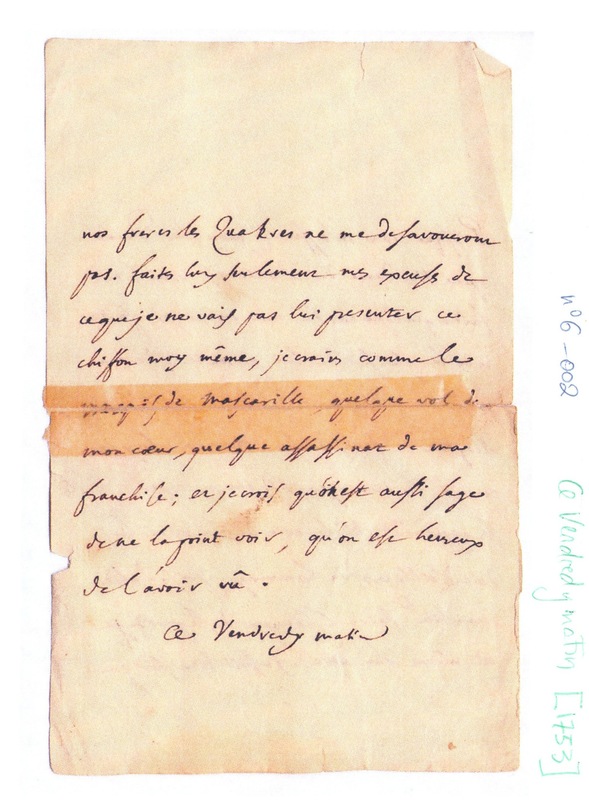 nos freres les Quakres ne me desavoueront
pas. faites luy seulement mes excuses de
ce que je ne vais pas lui presenter ce
chiffon moy même, je crains comme le
marquis de mascarille, quelque vol de
mon cœur, quelque assassinat de ma
franchise ; et je crois qu'on est aussi sage
de ne la point voir, qu'on est heureux
de l'avoir vû .
Ce Vendredy matin
n°6-002
Ce Vendredy matin [1753]